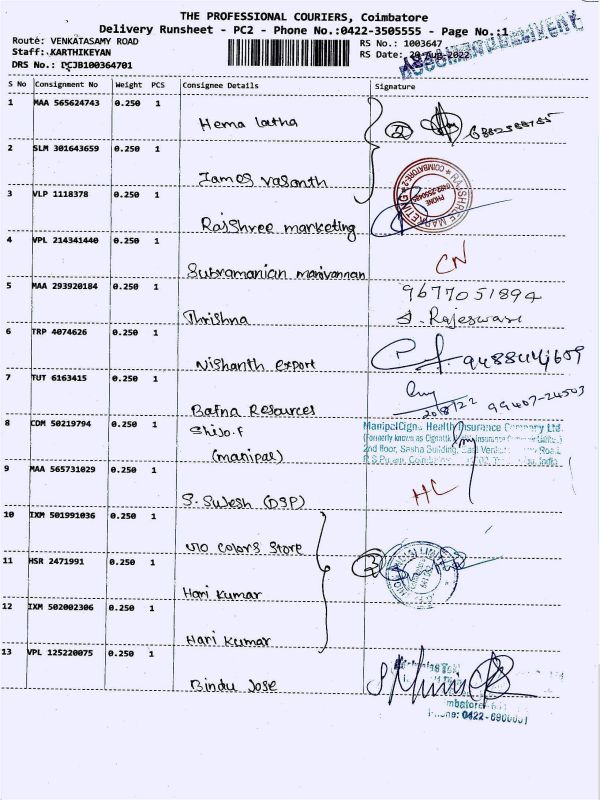 THE PROFESSIONAL COURIERS, Coimbatore
Delivery Runsheet - PC2 - Phone No.:0422-3505555 - Page No.:1
Route: VENKATASAMY ROAD
RS No.: 1003647
Staff:.KARTHIKEYAN
RS Date: 20-Aug-2022
DRS No.: PCJB100364701
S No Consignment No Weight PCS Consignee Details Signature
1 MAA 565624743 0.250 1
Hema latha
2 SLM 301643659 0.250 1
James vasanth
3 VLP 1118378 0.250 1
Rajshree marketing
RAJSHREE MARKETING
COIMBATORE-2
PHONE
4 VPL 214341440 0.250 1
Subramanian manivannan
CN
5 MAA 293920184 0.250 1
9677051894
Thrishna
S. Rajeswari
6 TRP 4074626 0.250 1
Nishanth export
7 TUT 6163415 0.250 1
99407-24503
Bafna Resources
20/8/22
8 CDM 50219794 0.250 1
Shijo.F
(manipal)
ManipalCigna Health Insurance Company Ltd.
(Formerly known as CignaTTK Insurance
2nd Floor, Sasha Building, East Venkat Road,
9 MAA 565731029 0.250 1
S. Suresh (DSP)
HC
10 IXM 501991036 0.250 1
V10 colors store
11 HSR 2471991 0.250 1
Hari kumar
12 IXM 502002306 0.250 1
Hari kumar
13 VPL 125220075 0.250 1
Bindu Jose